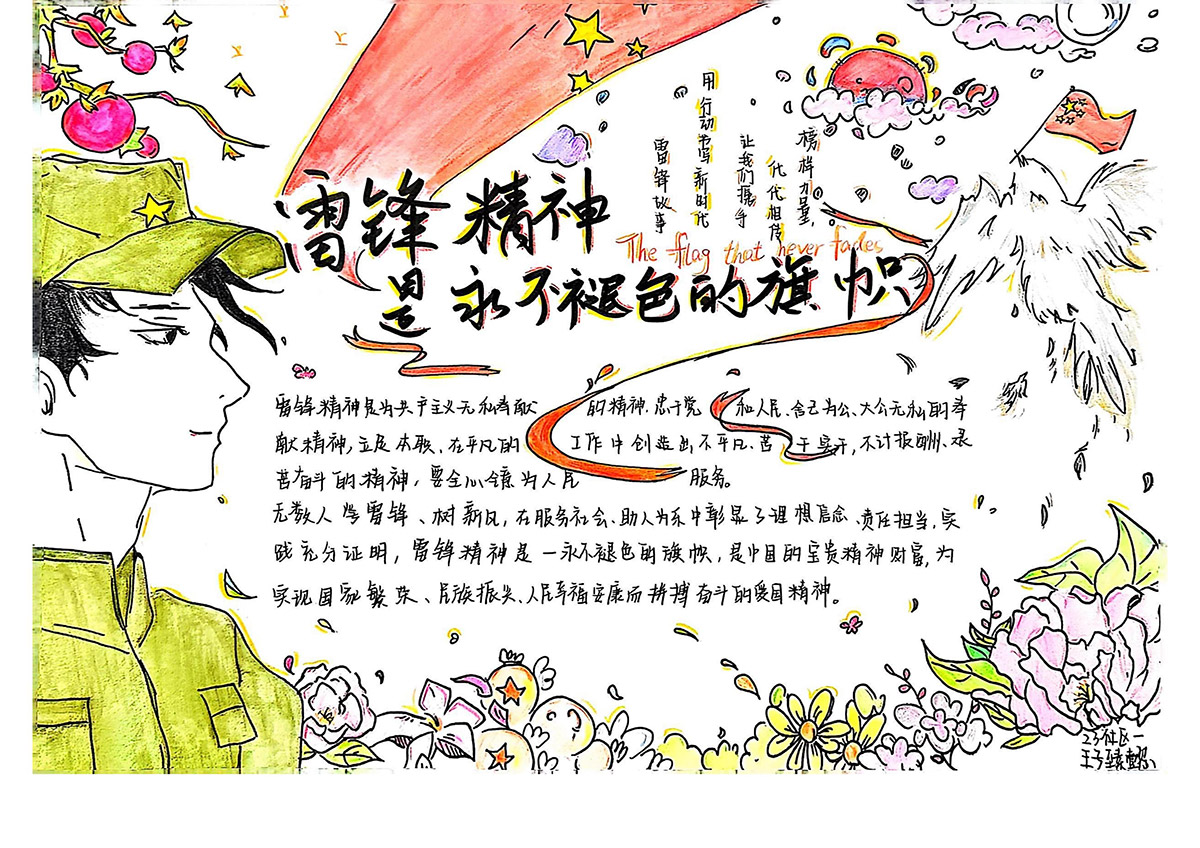 雷锋精神
是永不褪色的旗帜
The flag that never fades
榜样力量,
代代相传
让我们携手
用行动书写新时代
雷锋故事
雷锋精神是为共产主义无私奉献的精神、忠于党和人民、舍己为公、大公无私的奉
献精神,立足本职、在平凡的工作中创造出不平凡、苦干实干,不计报酬、艰
苦奋斗的精神,要全心全意为人民服务。
无数人学雷锋、树新风,在服务社会、助人为乐中彰显了理想信念、责任担当,实
践充分证明,雷锋精神是一永不褪色的旗帜,是中国的宝贵精神财富,为
实现国家繁荣、民族振兴、人民幸福安康而拼搏奋斗的爱国精神。
23社区一